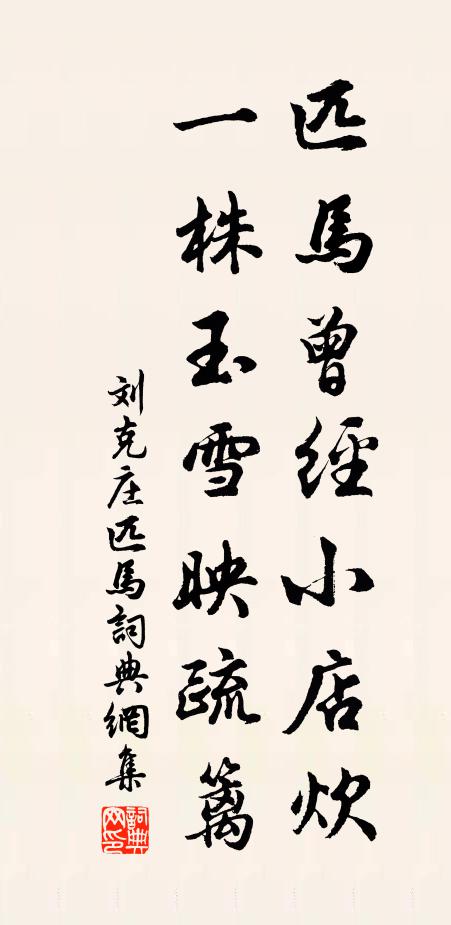 匹馬曾經小店炊
一株玉雪映疏籬
刘克庄匹馬詞典網集
詞典网印